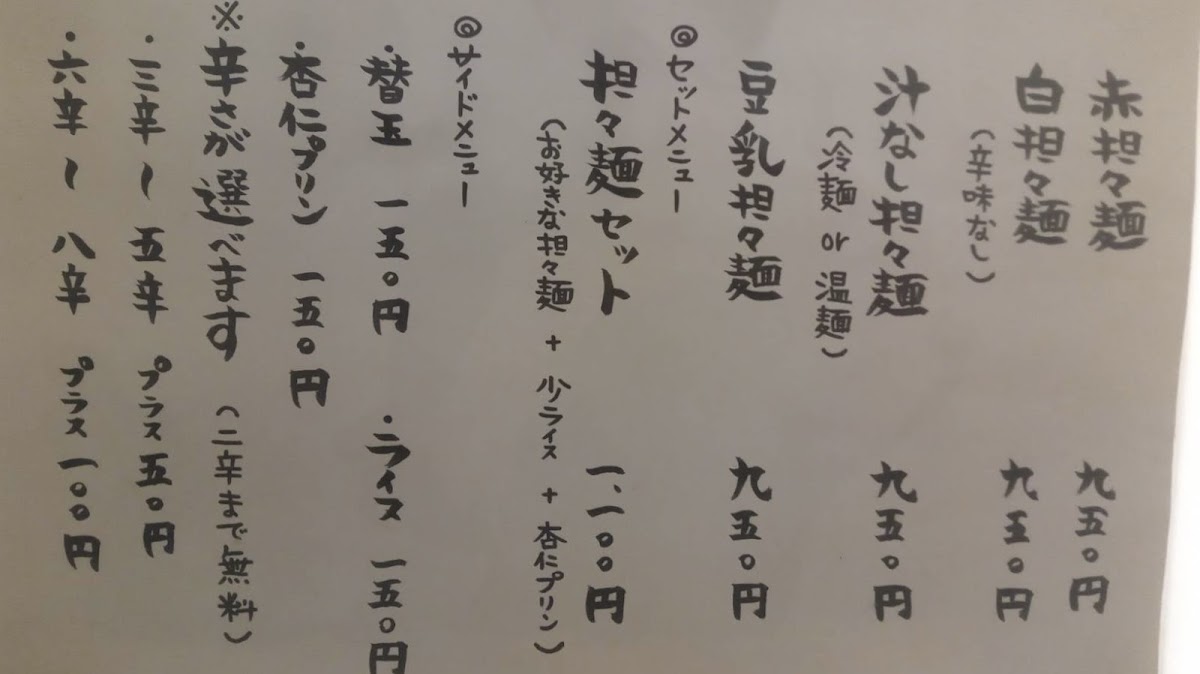 赤担々麺 九五〇円
白担々麺 九五〇円
(辛味なし)
汁なし担々麺 九五〇円
(冷麺 or 温麺)
豆乳担々麺 九五〇円
◎セットメニュー
担々麺セット 一、一〇〇円
(お好きな担々麺 + 少ライス + 杏仁プリン)
◎サイドメニュー
・替玉 一五〇円 ・ライス 一五〇円
・杏仁プリン 一五〇円
※辛さが選べます (二辛まで無料)
・三辛〜五辛 プラス五〇円
・六辛〜八辛 プラス一〇〇円